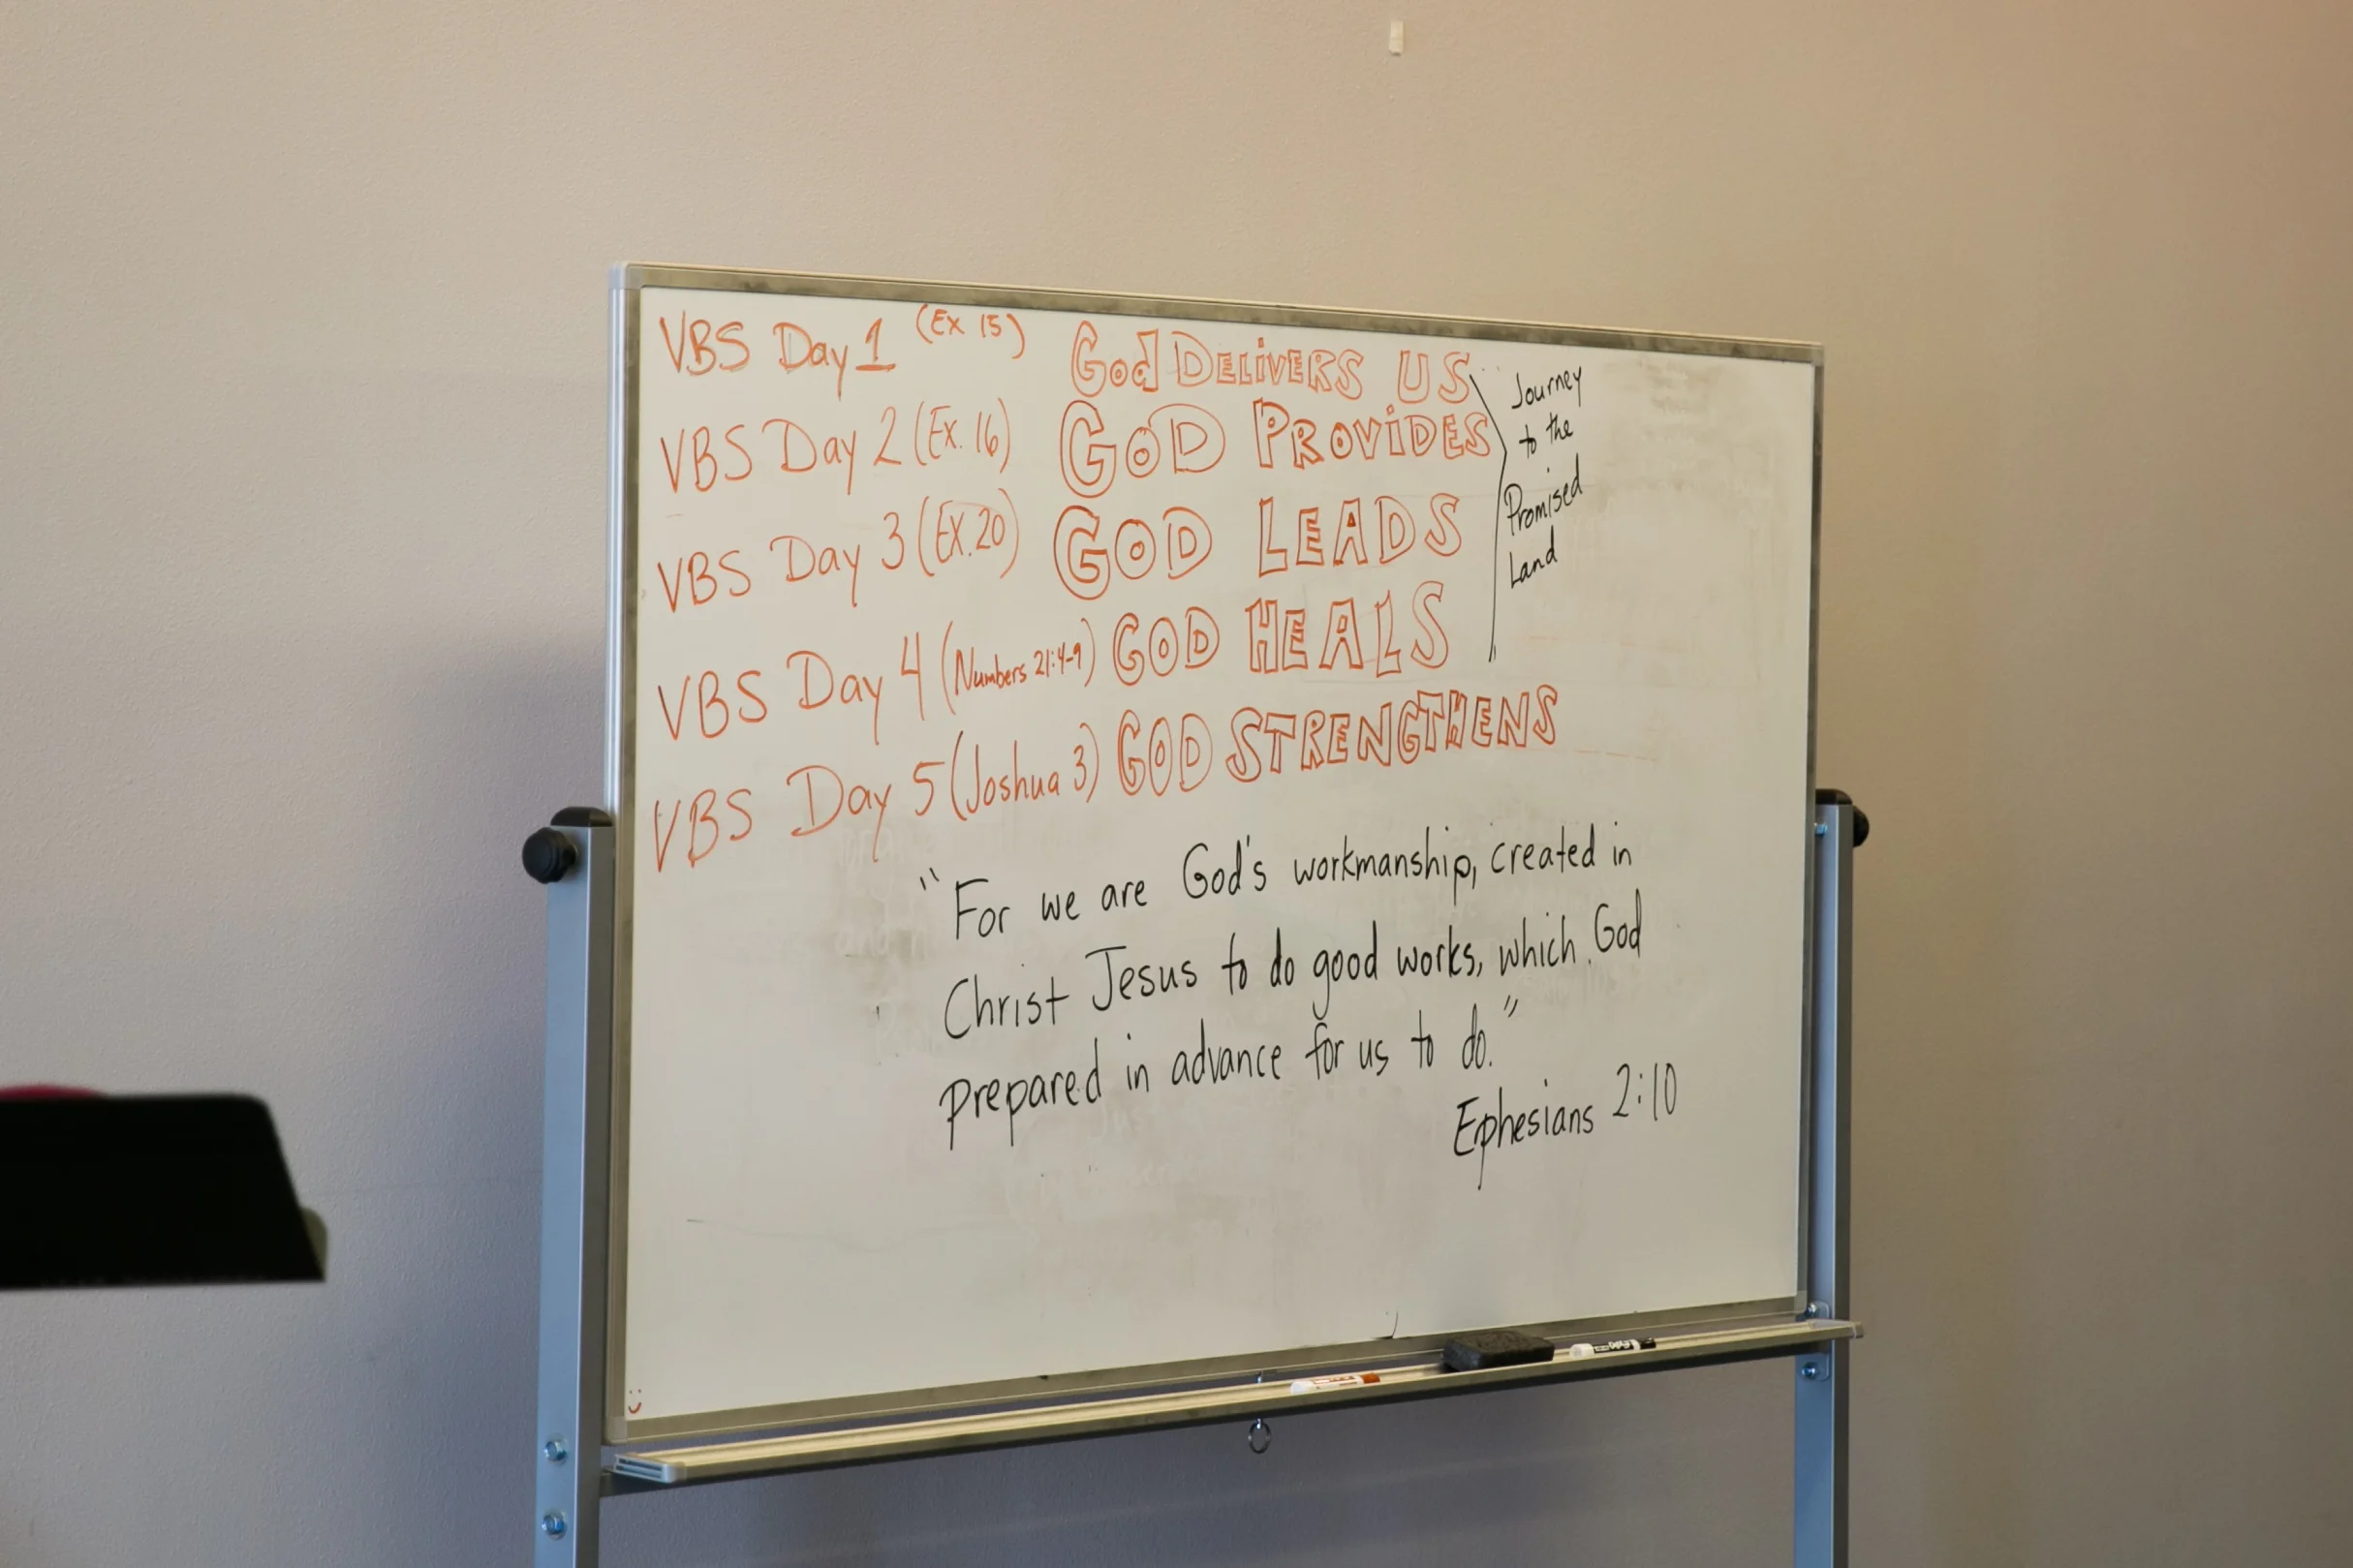 VBS Day 1 (Ex 15) God DELiVERS US
VBS Day 2 (Ex. 16) GOD PROViDES
VBS Day 3 (EX. 20) GOD LEADS
VBS Day 4 (Numbers 21:4-9) GOD HEALS
VBS Day 5 (Joshua 3) GOD STRENGTHENS
Journey
to the
Promised
Land
"For we are God's workmanship, created in
Christ Jesus to do good works, which God
prepared in advance for us to do."
Ephesians 2:10